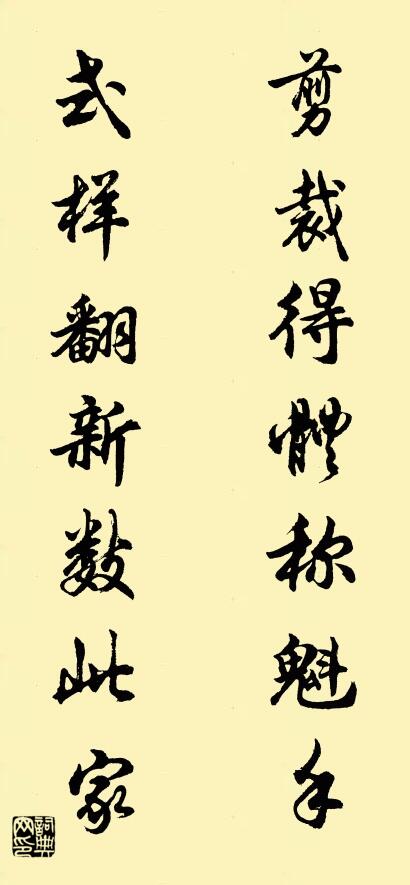 剪裁得體称魁手
式样翻新数此家
詞典网印